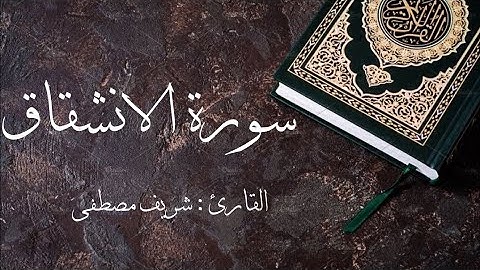 سورة الانشقاق
القارئ : شريف مصطفى